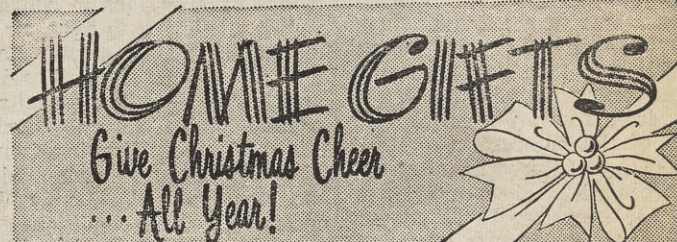 HOME GIFTS
Give Christmas Cheer
...All Year!